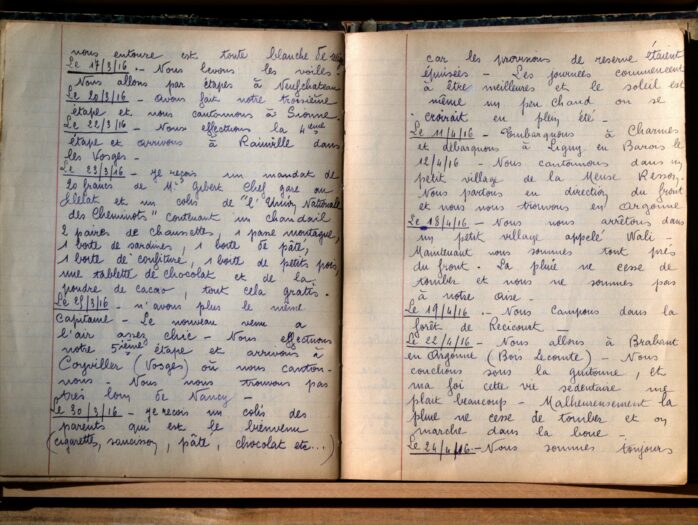 nous entoure est toute blanche de neige
Le 17/3/16 - Nous levons les voiles
Nous allons par étapes à Neufchateau
Le 20/3/16 - avons fait notre troisième
étape et nous cantonnons à
Le 22/3/16 - Nous effectuons la 4ème
étape et arrivons à Rainville dans
les Vosges -
Le 23/3/16 - Je reçois un mandat de
20 francs de Mr Gibert Chef gare au
et un colis de "l'Union Nationale
des Cheminots" contenant un chandail
2 paires de chaussettes, 1 passe montagne,
1 boite de sardines, 1 boite de pâté,
1 boite de confiture, 1 boite de petits pois,
une tablette de chocolat et de la
poudre de cacao, tout cela gratis.
Le 25/3/16 - n'avons plus le même
capitaine - Le nouveau venu a
l'air assez chic - Nous effectuons
notre 5ième étape et arrivons à
(Vosges) où nous canton-
nons - Nous nous trouvons pas
très loin de Nancy -
Le 30/3/16 - Je reçois un colis des
parents qui est le bienvenu
(cigarettes, saucisson, pâté, chocolat etc...)
car les provisions de reserve étaient
épuisées - Les journées commencent
à être meilleures et le soleil est
même un peu chaud on se
croirait en plein été -
Le 11/4/16 - Embarquons à Charmes
et débarquons à Ligny en Barois le
12/4/16 - Nous cantonnons dans un
petit village de la Meuse
Nous partons en direction du front
et nous nous trouvons en Argonne
Le 18/4/16 - Nous nous arrêtons dans
un petit village appelé Wali -
Maintenant nous sommes tout près
du front. La pluie ne cesse de
tomber et nous ne sommes pas
à notre aise -
Le 19/4/16. - Nous campons dans la
forêt de Recicourt
Le 22/4/16 - Nous allons à Brabant
en Argonne (Bois Lecomte) - Nous
couchons sous la guitoune, et
ma foi cette vie sédentaire me
plait beaucoup - Malheureusement la
pluie ne cesse de tomber et on
marche dans la boue -
Le 24/4/16 - Nous sommes toujours